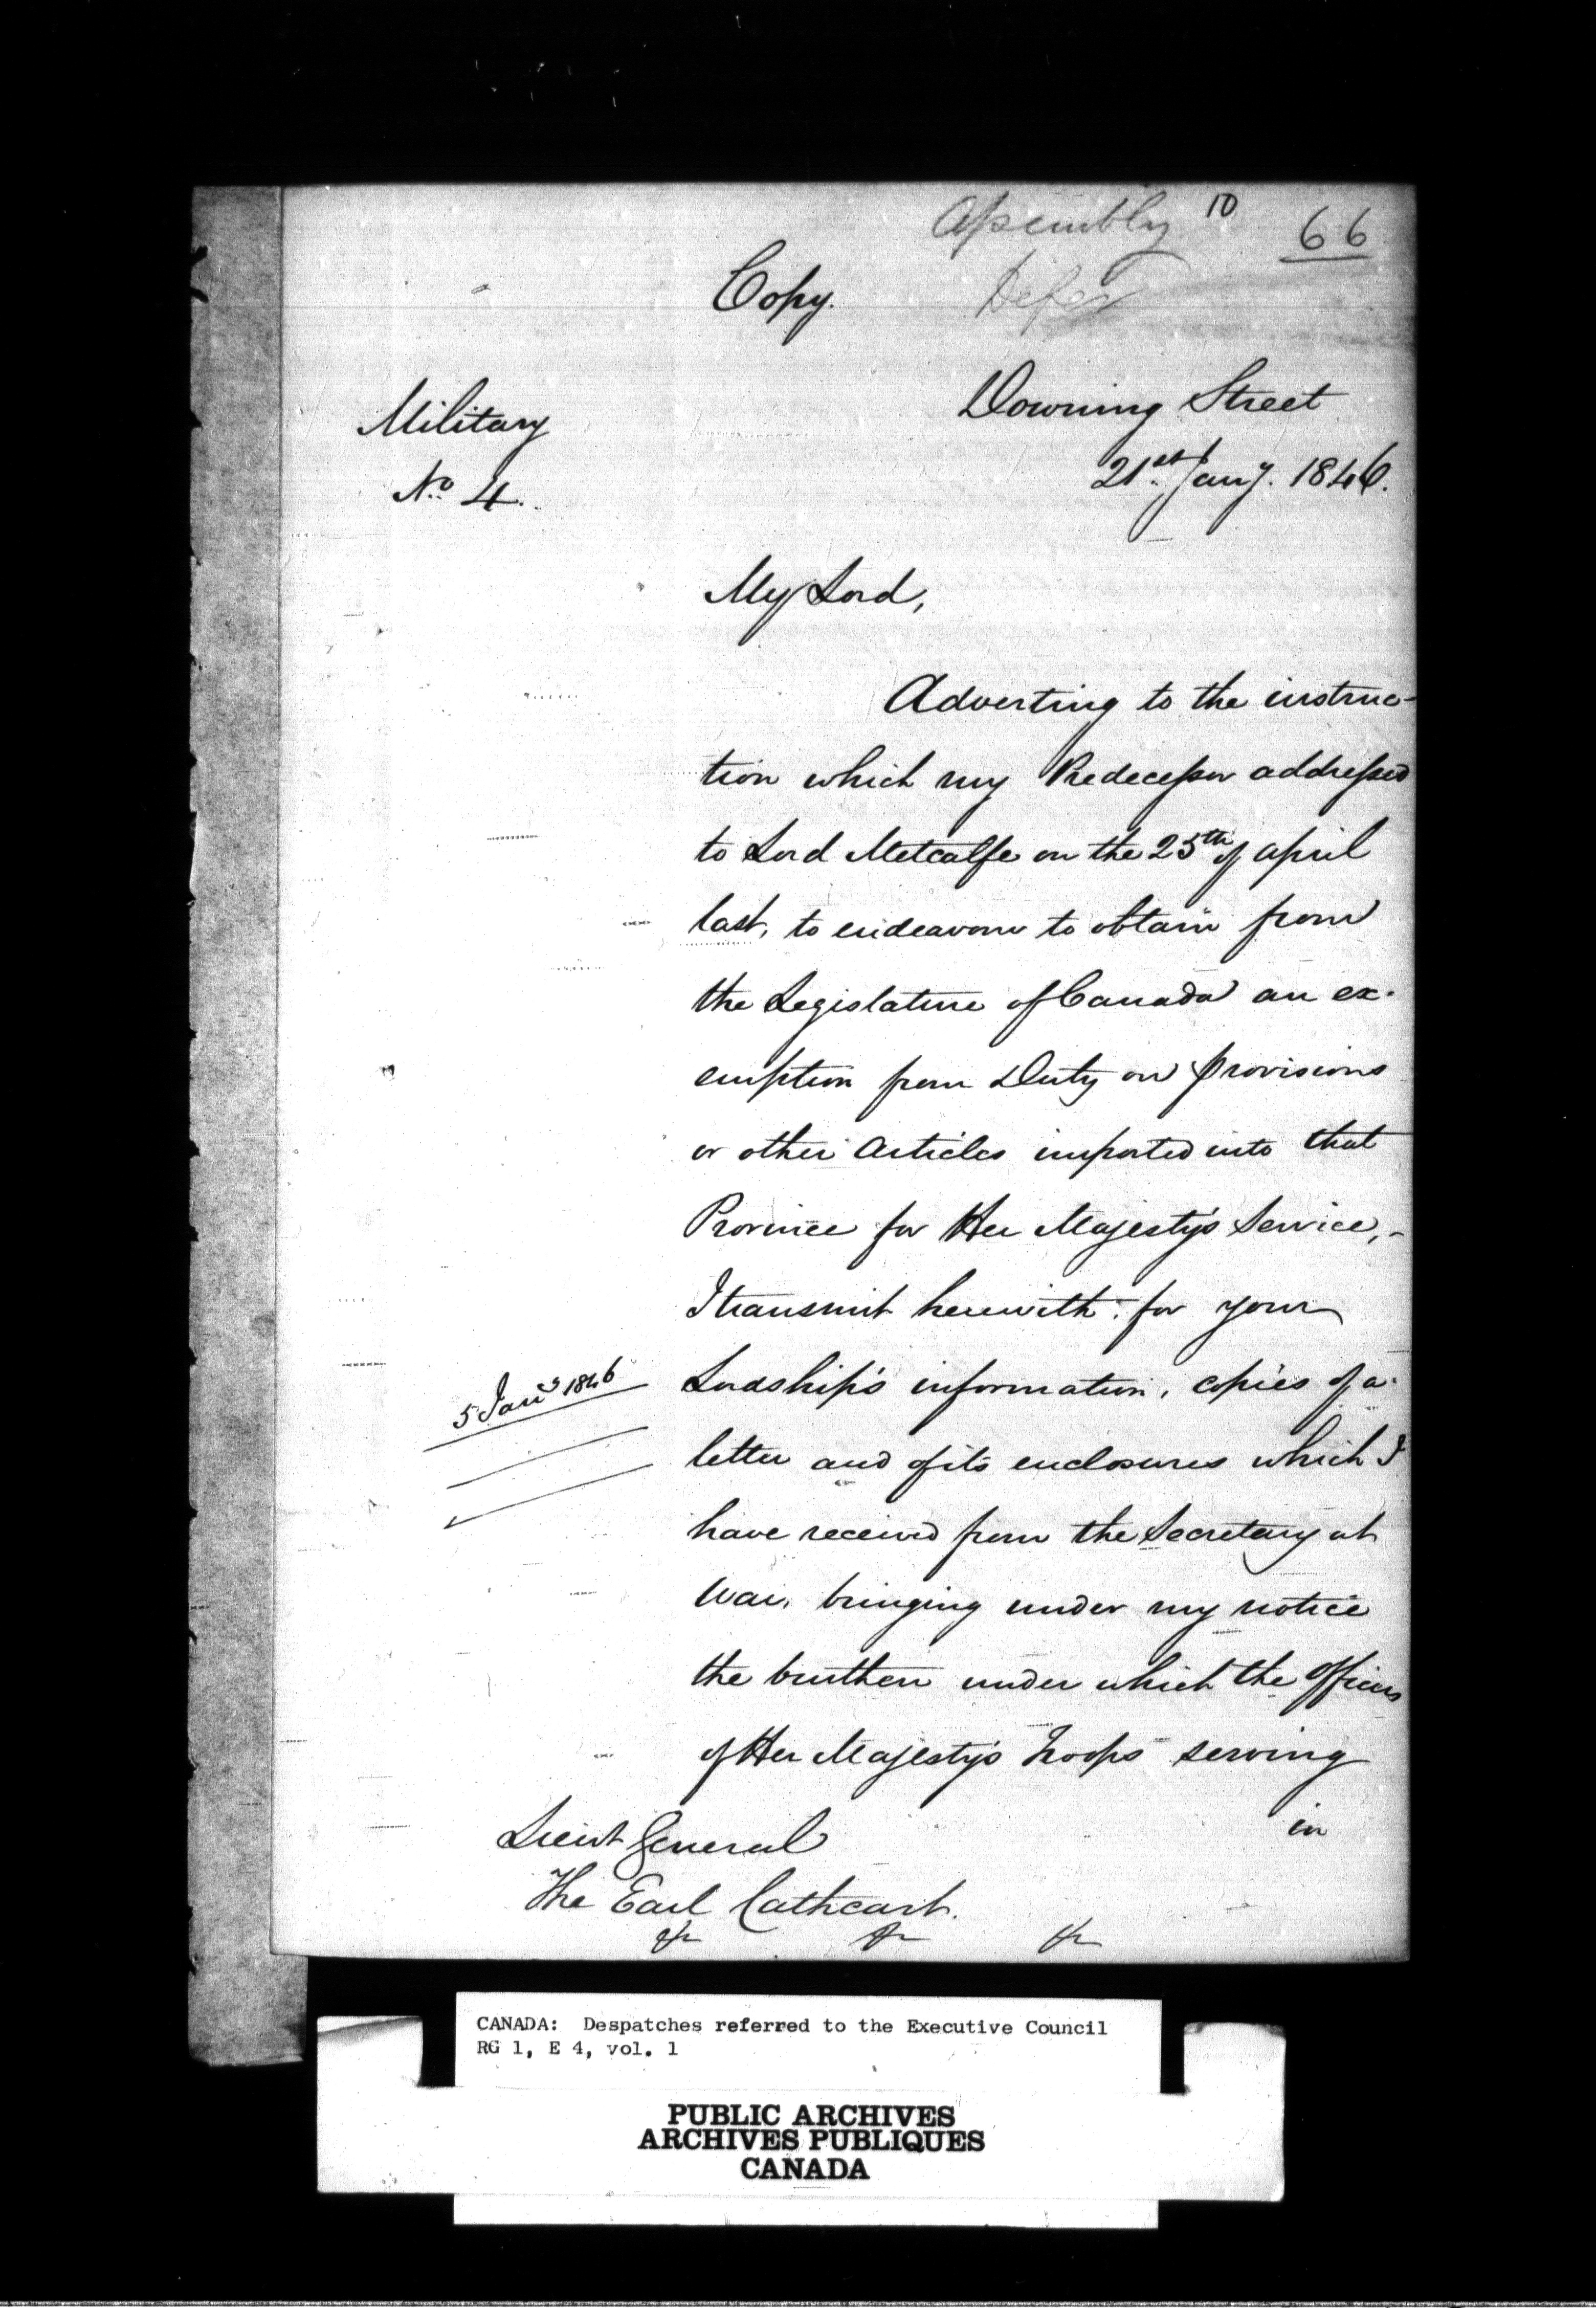 Assembly 10 66
Copy. Defer
Military
No. 4.
Downing Street
21st Jany. 1846.
My Lord,
Adverting to the instruc-
tion which my Predecessor addressed
to Lord Metcalfe on the 25th of April
last, to endeavour to obtain from
the Legislature of Canada an ex-
emption from Duty on Provisions
or other Articles imported into that
Province for Her Majesty's Service,-
I transmit herewith for your
5 Jany 1846
Lordship's information, copies of a
letter and of its enclosures which I
have received from the Secretary at
War, bringing under my notice
the burthen under which the Officers
of Her Majesty's Troops serving
in
Lieut General
The Earl Cathcart.
&c &c &c
CANADA: Despatches referred to the Executive Council
RG 1, E 4, vol. 1
PUBLIC ARCHIVES
ARCHIVES PUBLIQUES
CANADA